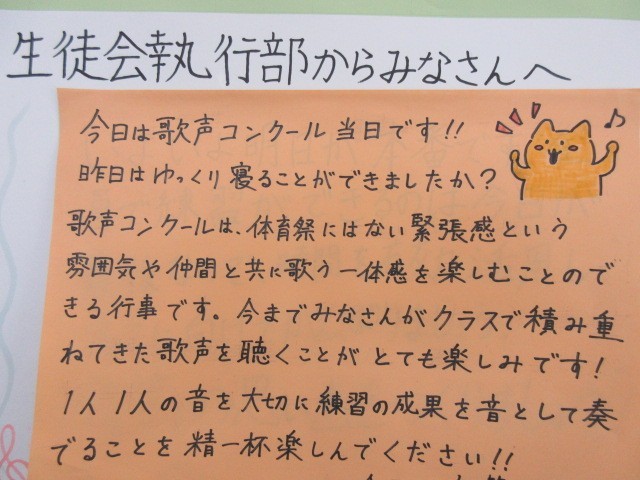 生徒会執行部からみなさんへ
今日は歌声コンクール当日です!!
昨日はゆっくり寝ることができましたか?
歌声コンクールは、体育祭にはない緊張感という
雰囲気や仲間と共に歌う一体感を楽しむことので
きる行事です。今までみなさんがクラスで積み重
ねてきた歌声を聴くことがとても楽しみです!
1人1人の音を大切に練習の成果を音として奏
でることを精一杯楽しんでください!!